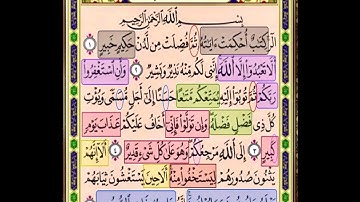 بِسْمِ اللَّهِ الرَّحْمَٰنِ الرَّحِيمِ
الٓر كِتَٰبٌ أُحْكِمَتْ ءَايَٰتُهُۥ ثُمَّ فُصِّلَتْ مِن لَّدُنْ حَكِيمٍ خَبِيرٍ ١
أَلَّا تَعْبُدُوٓا۟ إِلَّا ٱللَّهَ إِنَّنِى لَكُم مِّنْهُ نَذِيرٌ وَبَشِيرٌ ٢ وَأَنِ ٱسْتَغْفِرُوا۟
رَبَّكُمْ ثُمَّ تُوبُوٓا۟ إِلَيْهِ يُمَتِّعْكُم مَّتَٰعًا حَسَنًا إِلَىٰٓ أَجَلٍ مُّسَمًّى وَيُؤْتِ
كُلَّ ذِى فَضْلٍ فَضْلَهُۥ وَإِن تَوَلَّوْا۟ فَإِنِّىٓ أَخَافُ عَلَيْكُمْ عَذَابَ يَوْمٍ
كَبِيرٍ ٣ إِلَى ٱللَّهِ مَرْجِعُكُمْ وَهُوَ عَلَىٰ كُلِّ شَىْءٍ قَدِيرٌ ٤ أَلَآ إِنَّهُمْ
يَثْنُونَ صُدُورَهُمْ لِيَسْتَخْفُوا۟ مِنْهُ أَلَا حِينَ يَسْتَغْشُونَ ثِيَابَهُمْ